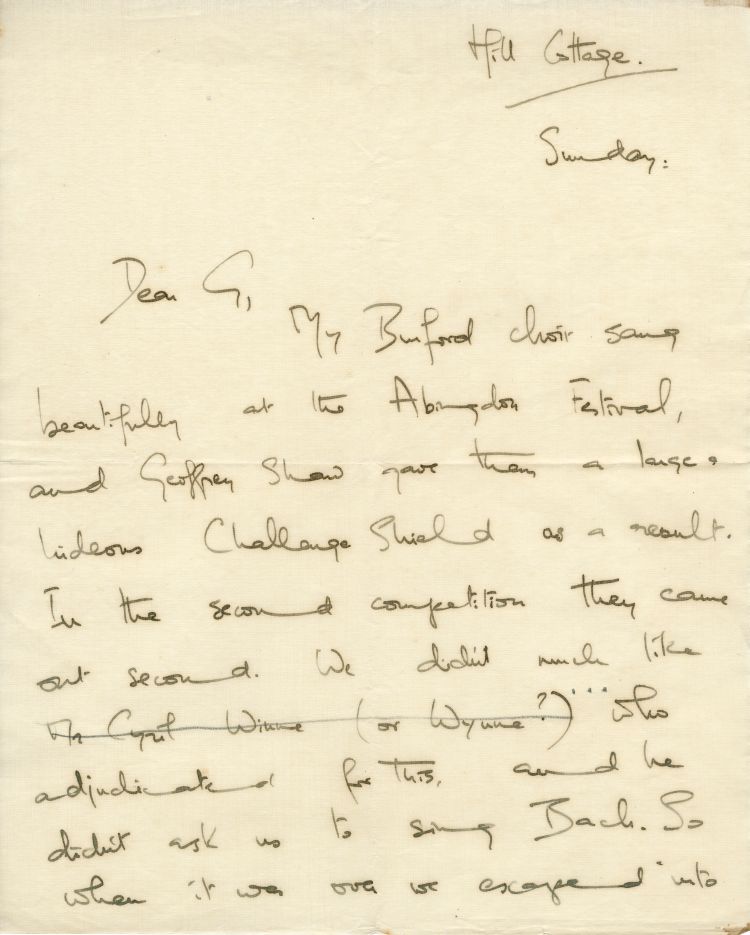 Hill Cottage.
Sunday.
Dear G,
My Burford choir sang
beautifully at the Abingdon Festival,
and Geoffrey Shaw gave them a large &
hideous Challenge Shield as a result.
In the second competition they came
out second. We didn't much like
Mr Cyril Winne (or Wynne?) ... who
adjudicated for this, and he
didn't ask us to sing Bach. So
when it was over we escaped into